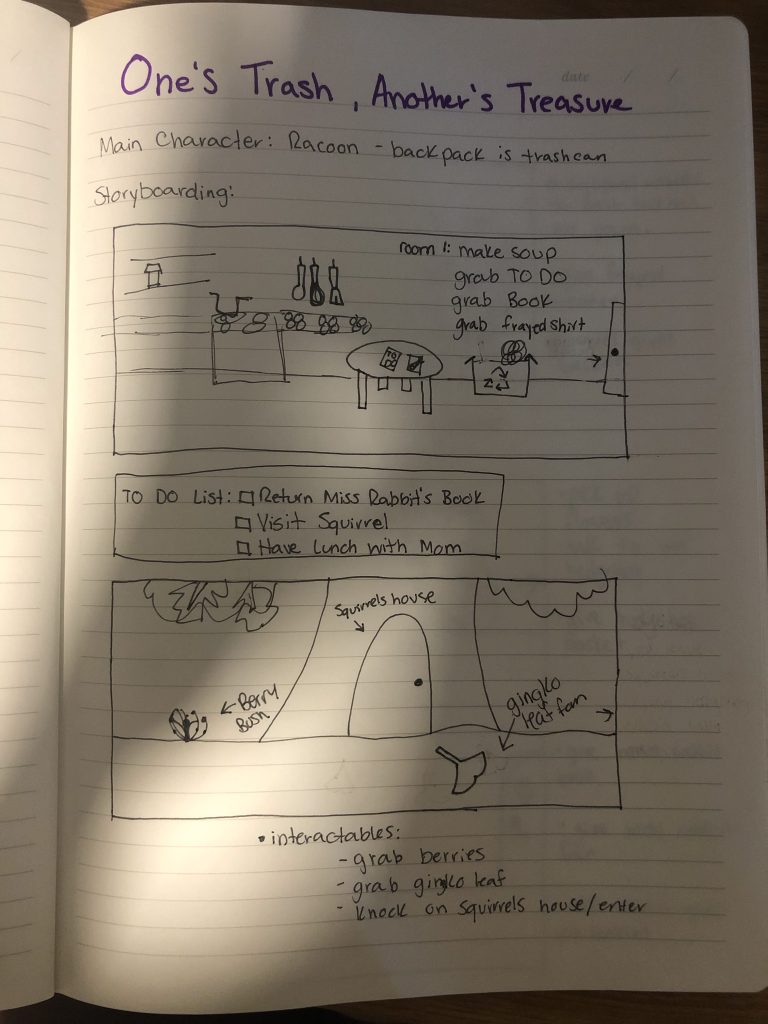 date / /
One's Trash, Another's Treasure
Main Character: Racoon - backpack is trashcan
Storyboarding:
room 1: make soup
grab TO DO
grab Book
grab frayed shirt
TO DO
TO DO List: □ Return Miss Rabbit's Book
□ Visit Squirrel
□ Have Lunch with Mom
Squirrels house
Berry
Bush
gingko
leaf fan
• interactables:
- grab berries
- grab gingko leaf
- Knock on squirrels house/enter